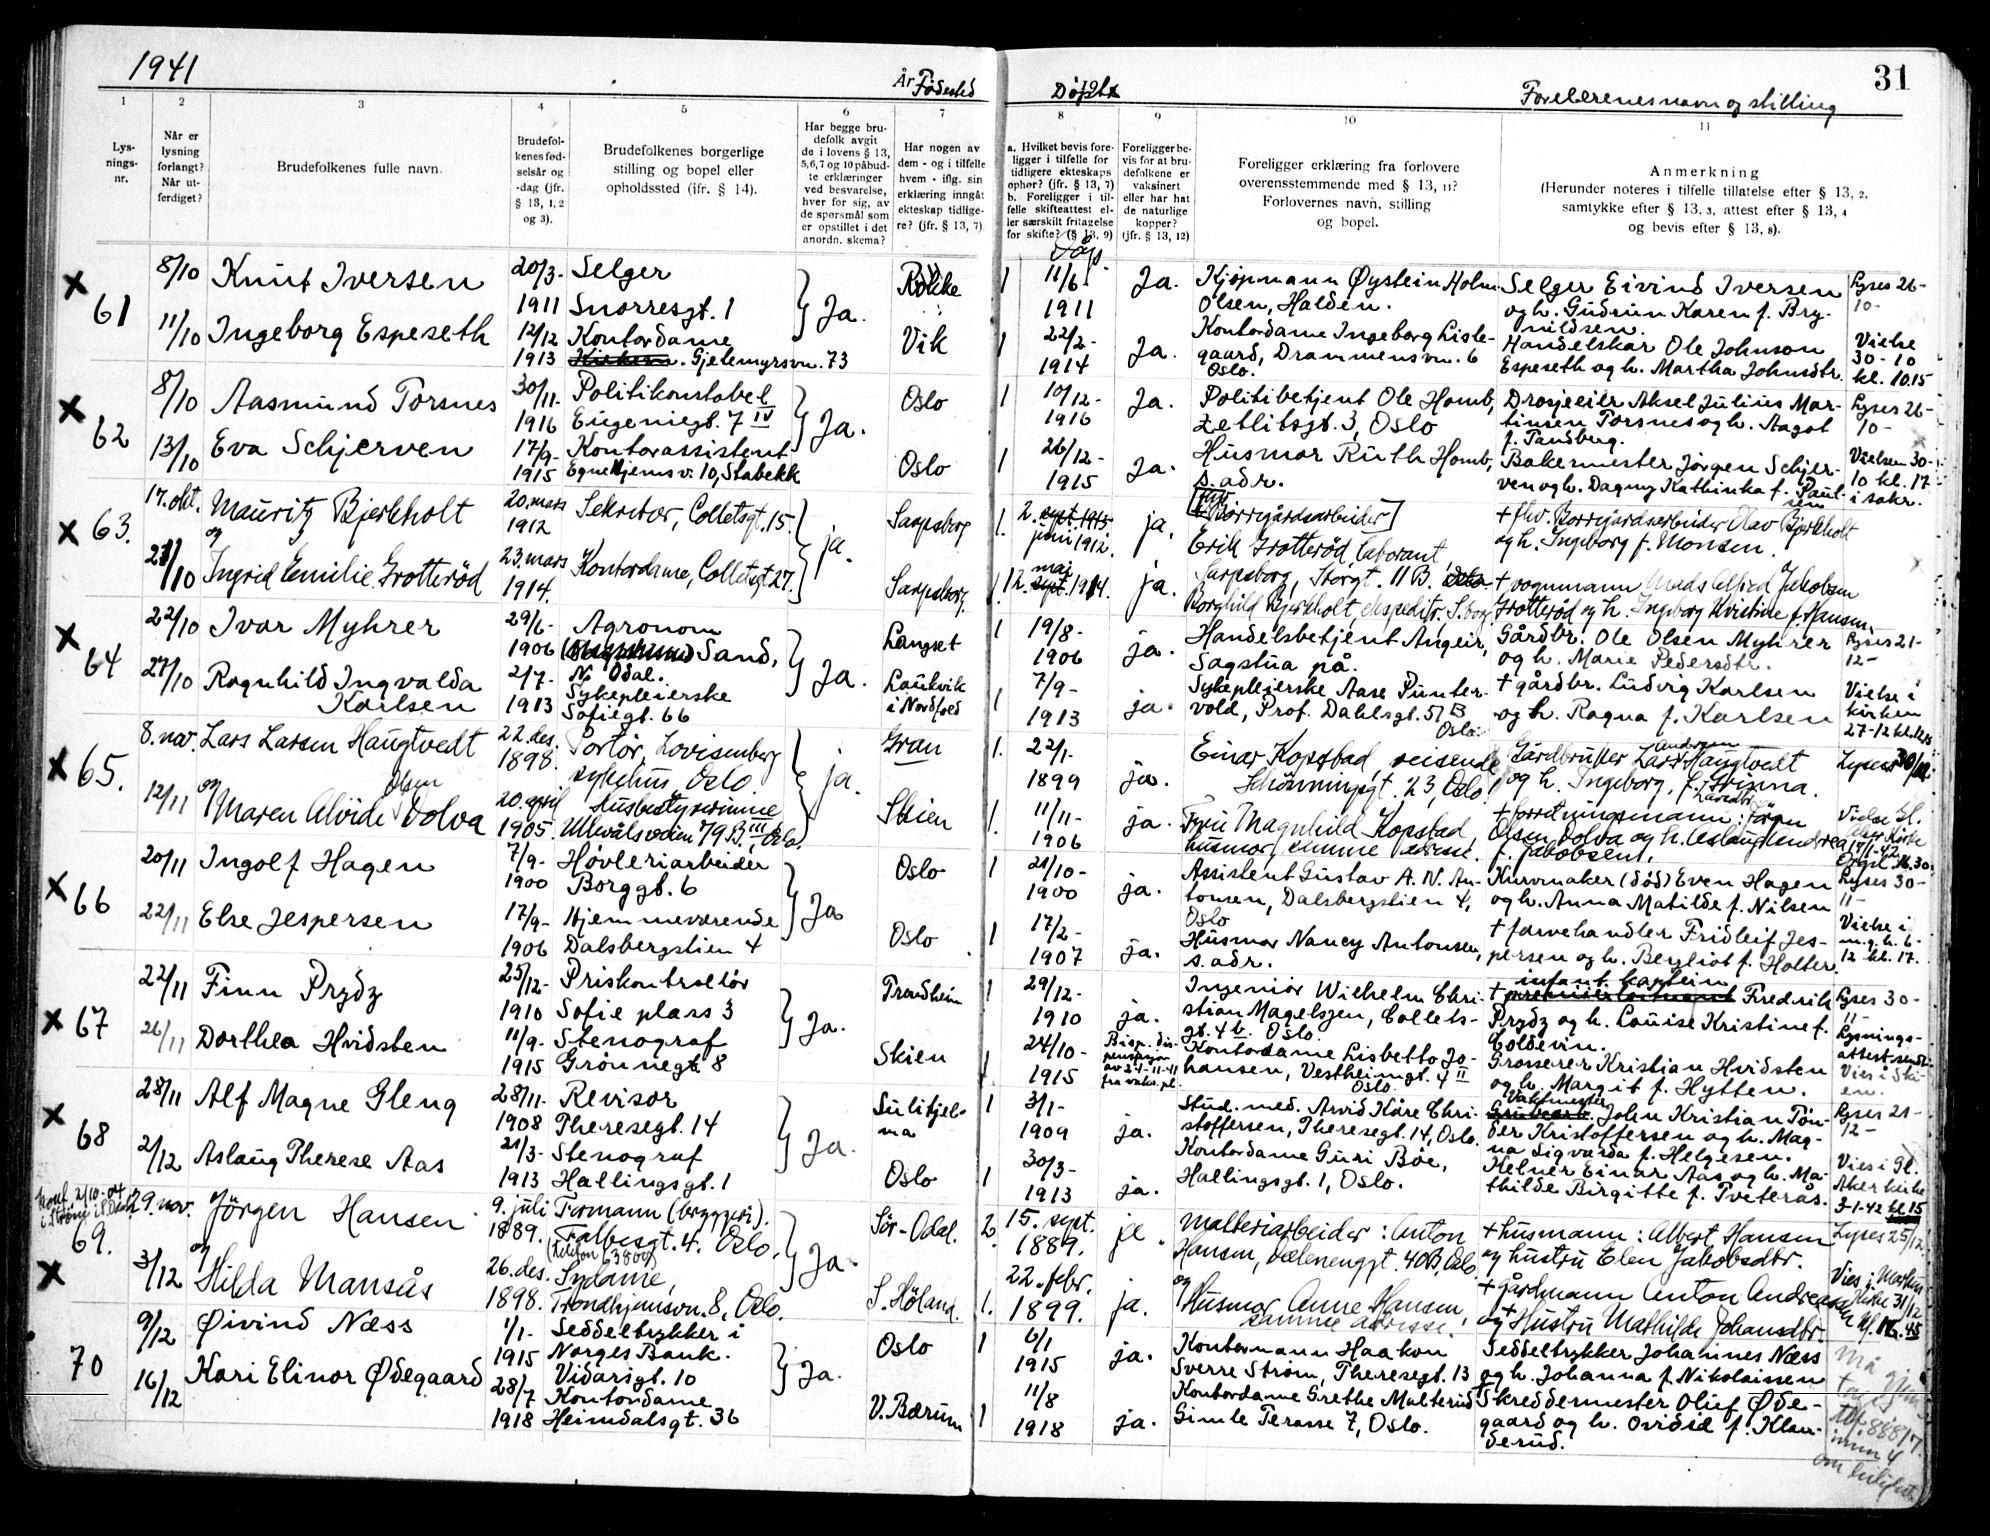 1941
År Fødested
Døpt
Foreldrenes navn og stilling
31
1 2 3 4 5 6 7 8 9 10 11
Lysnings-nr.
Når er lysning forlangt? Når utferdiget?
Brudefolkenes fulle navn.
Brudefolkenes fødselsår og -dag (jfr. § 13, 1, 2 og 3).
Brudefolkenes borgerlige stilling og bopel eller opholdssted (jfr. § 14).
Har begge brudefolk avgit de i lovens § 13, 5, 6, 7 og 10 påbudte erklæringer ved besvarelse, hver for sig, av de spørsmål som er opstillet i det anordn. skema?
Har nogen av dem - og i tilfelle hvem - iflg. sin erklæring inngått ekteskap tidligere? (jfr. § 13, 7)
a. Hvilket bevis foreligger i tilfelle for tidligere ekteskaps ophør? (§ 13, 7) b. Foreligger i tilfelle skifteattest eller særskilt fritagelse for skifte? (§ 13, 9)
Foreligger bevis for at brudefolkene er vaksinert eller har hat de naturlige kopper? (jfr. § 13, 12)
Foreligger erklæring fra forlovere overensstemmende med § 13, 11? Forlovernes navn, stilling og bopel.
Anmerkning (Herunder noteres i tilfelle tillatelse efter § 13, 2, samtykke efter § 13, 3, attest efter § 13, 4 og bevis efter § 13, 8).
x 61
8/10 Knut Iversen 20/3- 1911 Selger Snorresgt. 1 Ja. Rokke 1 11/6 1911 Ja. Kjøpmann Øystein Holm Olsen, Halden. Selger Eivind Iversen og h. Gudrun Karen f. Brynildsen. Lyses 26-10-
11/10 Ingeborg Espeseth 12/12 1913 Kontordame Gjetemyrsvn. 73 Vik 1 22/2- 1914 Ja. Kontordame Ingeborg Lislegaard, Drammensvn. 6 Oslo. Handelskar Ole Johnson Espeseth og h. Martha Johnsdtr. Vielse 30-10 kl. 10.15
x 62
8/10 Aasmund Torsnes 30/11- 1916 Politikonstabel Eugeniegt. 7 IV Ja. Oslo 1 10/12- 1916 Ja. Politibetjent Ole Homb, Zetlitsgt. 3, Oslo Drosjeeier Aksel Julius Martinsen Torsnes og h. Aagot f. Tandberg. Lyses 26-10-
13/10 Eva Schjerven 17/9- 1915 Kontorassistent Egne Hjemsv. 10, Stabekk Oslo 1 26/12- 1915 Ja. Husmor Ruth Homb, s. adr. Bakermester Jørgen Schjerven og h. Dagny Kathinka f. Paulsen Vielsen 30-10 kl. 17- i sakr.
x 63.
17. okt. Mauritz Bjerkholt 20. mars 1912 Sekretær, Colletsgt. 15. ja. Sarpsborg 1. 2. juni 1912. ja. Erik Grotterød, laborant, Sarpsborg, Storgt. 11 B. + fhv. Borregårdsarbeider Olav Bjerkholt og h. Ingeborg f. Monsen.
og
21/10 Ingrid Emilie Grotterød 23. mars 1914. Kontordame, Colletsgt. 27. Sarpsborg. 1 2. mai 1914. ja. Borghild Bjerkholt, ekspeditr. S.borg + vognmann Mads Alfred Jakobsen Grotterød og h. Ingeborg Kristine f. Hansen.
x 64
22/10 Ivar Myhrer 29/6- 1906 Agronom Sand, N. Odal. Ja. Langset 1 19/8- 1906 ja. Handelsbetjent Sagstua på. Gårdbr. Ole Olsen Myhrer og h. Marie Pedersdtr. Lyses 21-12-
27/10 Ragnhild Ingvalda Karlsen 2/7- 1913 Sykepleierske Sofiegt. 66 Laukvik i Nordfold 1 7/9- 1913 ja. Sykepleierske Aase Puntervold, Prof. Dahlsgt. 51 B Oslo. + gårdbr. Ludvig Karlsen og h. Ragna f. Karlsen Vielse i kirken 27-12
x 65.
8. nov. Lars Larsen Haugtvedt 22. des. 1898. Portør, Lovisenberg sykehus Oslo ja. Gran 1. 22/1- 1899 ja. Einar Kopstad, reisende, Schønningsgt. 23, Oslo. Gårdbruker Lars Andersen Haugtvedt og h. Ingeborg, f. Grinna. Lyses
og
12/11 Maren Alvide Olsen Dolva 20. april 1905. Husbestyrerinne Ullevålsveien 79 B. III, Oslo. Skien 1. 11/11- 1906 ja. Fru Magnhild Kopstad, husmor, samme adresse. + forretningsmann: Jörgen Olsen Dolva og h. Aslaug Andrea f. Jakobsen. Vielse Gl. Aker Kirke 17/1-42
x 66
20/11 Ingolf Hagen 7/9- 1900 Høvleriarbeider Borggt. 6 Ja Oslo 1 21/10- 1900 ja. Assistent Gustav A. N. Antonsen, Dalsbergstien 4, Oslo Kurvmaker (død) Even Hagen og h. Anna Matilde f. Nilsen Lyses 30-11-
22/11 Else Jespersen 17/9- 1906 Hjemmeværende Dalsbergstien 4 Oslo 1 17/2- 1907 ja. Husmor Nancy Antonsen, s. adr. + farvehandler Fridleif Jespersen og h. Bergliot f. Holter. Vielse i m.g.h. 6-12 kl. 17.
x 67
22/11 Finn Prydz 25/12- 1910 Priskontrollør Sofie plass 3 Ja. Trondheim 1 29/12- 1910 ja. Ingeniør Wilhelm Christian Magelssen, Colletsgt. 4 b. Oslo. + infant. kaptein Fredrik Prydz og h. Louise Kristine f. Coldevin. Lyses 30-11-
26/11 Dorthea Hvidsten 11/9- 1915 Stenograf Grønnegt. 8 Skien 1 24/10- 1915 Bisp. dispensasjon av 24-11-41 fra vaks. pl. Kontordame Lisbeth Johansen, Vestheimgt. 4 II Oslo. Grosserer Kristian Hvidsten og h. Margit f. Hytten. Lysningsattest sendt. Vies i Skien.
x 68
28/11 Alf Magne Gleng 28/11- 1908 Revisor Theresegt. 14 Ja. Sulitjelma 1 3/1- 1909 ja. Stud. med. Arvid Kåre Christoffersen, Theresegt. 14, Oslo. Vaktmester John Kristian Tønder Kristoffersen og h. Magna Sigvarda f. Helgesen. Lyses 21-12-
2/12 Aslaug Therese Aas 21/3- 1913 Stenograf Hallingsgt. 1 Oslo 1 30/3- 1913 ja. Kontordame Guri Bøe, Hallingsgt. 1, Oslo. Kelner Einar Aas og h. Mathilde Birgitte f. Tveterås. Vies i Gl. Aker kirke 3-1-42 kl. 15
Konf. 2/10-04
69. x
29. nov. Jörgen Hansen 9. juli 1889. Formann (bryggeri). Falbesgt. 4. Oslo. (telefon 63860) Ja. Sør-Odal. 2. 15. sept. 1889. ja. Malteriarbeider: Anton Hansen, Vålerenggt. 40 B, Oslo + husmann: Albert Hansen og hustru Elen Jakobsdtr. Lyses 25/12.
og
3/12 Hilda Mansås 26. des. 1898. Sydame, Trondhjemsvn. 8, Oslo. S. Høland. 1. 22. febr. 1899. ja. og Husmor Anne Hansen, samme adresse. + Gårdmann Anton Andreassen og + Hustru Mathilde Johansdtr. Vies i Markus kirke 31/12
70
9/12 Øivind Næss 1/1- 1915 Seddeltrykker i Norges Bank. Vidarsgt. 10 Ja. Oslo 1 6/1 1915 ja. Kontormann Haakon Sverre Strøm, Theresegt. 13 Seddeltrykker Johannes Næss og h. Johanna f. Nikolaissen
16/12 Kari Elinor Ødegaard 28/7 1918 Kontordame Heimdalsgt. 36 V. Bærum 1 11/8 1918 ja. Kontordame Grethe Malterud Gimle Terasse 7, Oslo. Skreddermester Oluf Ødegaard og h. Ovidie f. Klanderud.